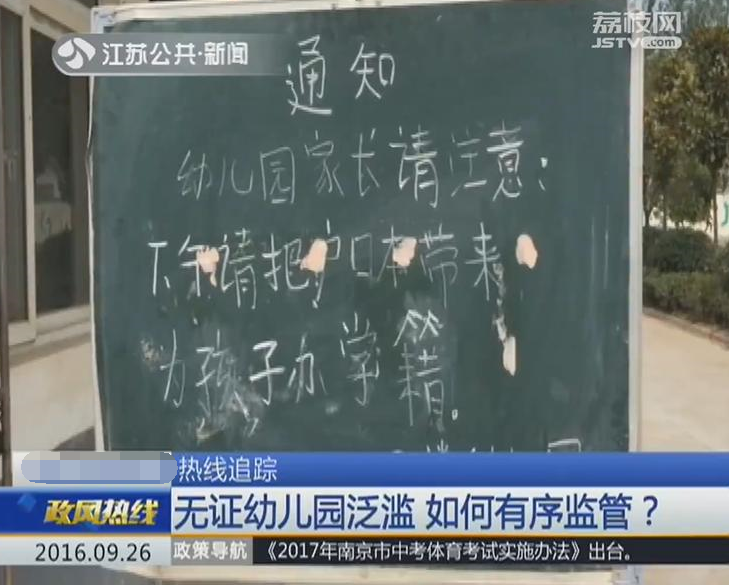 江苏公共·新闻
荔枝网
JSTV.com
通知
幼儿园家长请注意：
请把户口本带来
为孩子办学籍。
热线追踪
政风热线
无证幼儿园泛滥 如何有序监管？
2016.09.26
政策导航
《2017年南京市中考体育考试实施办法》出台。